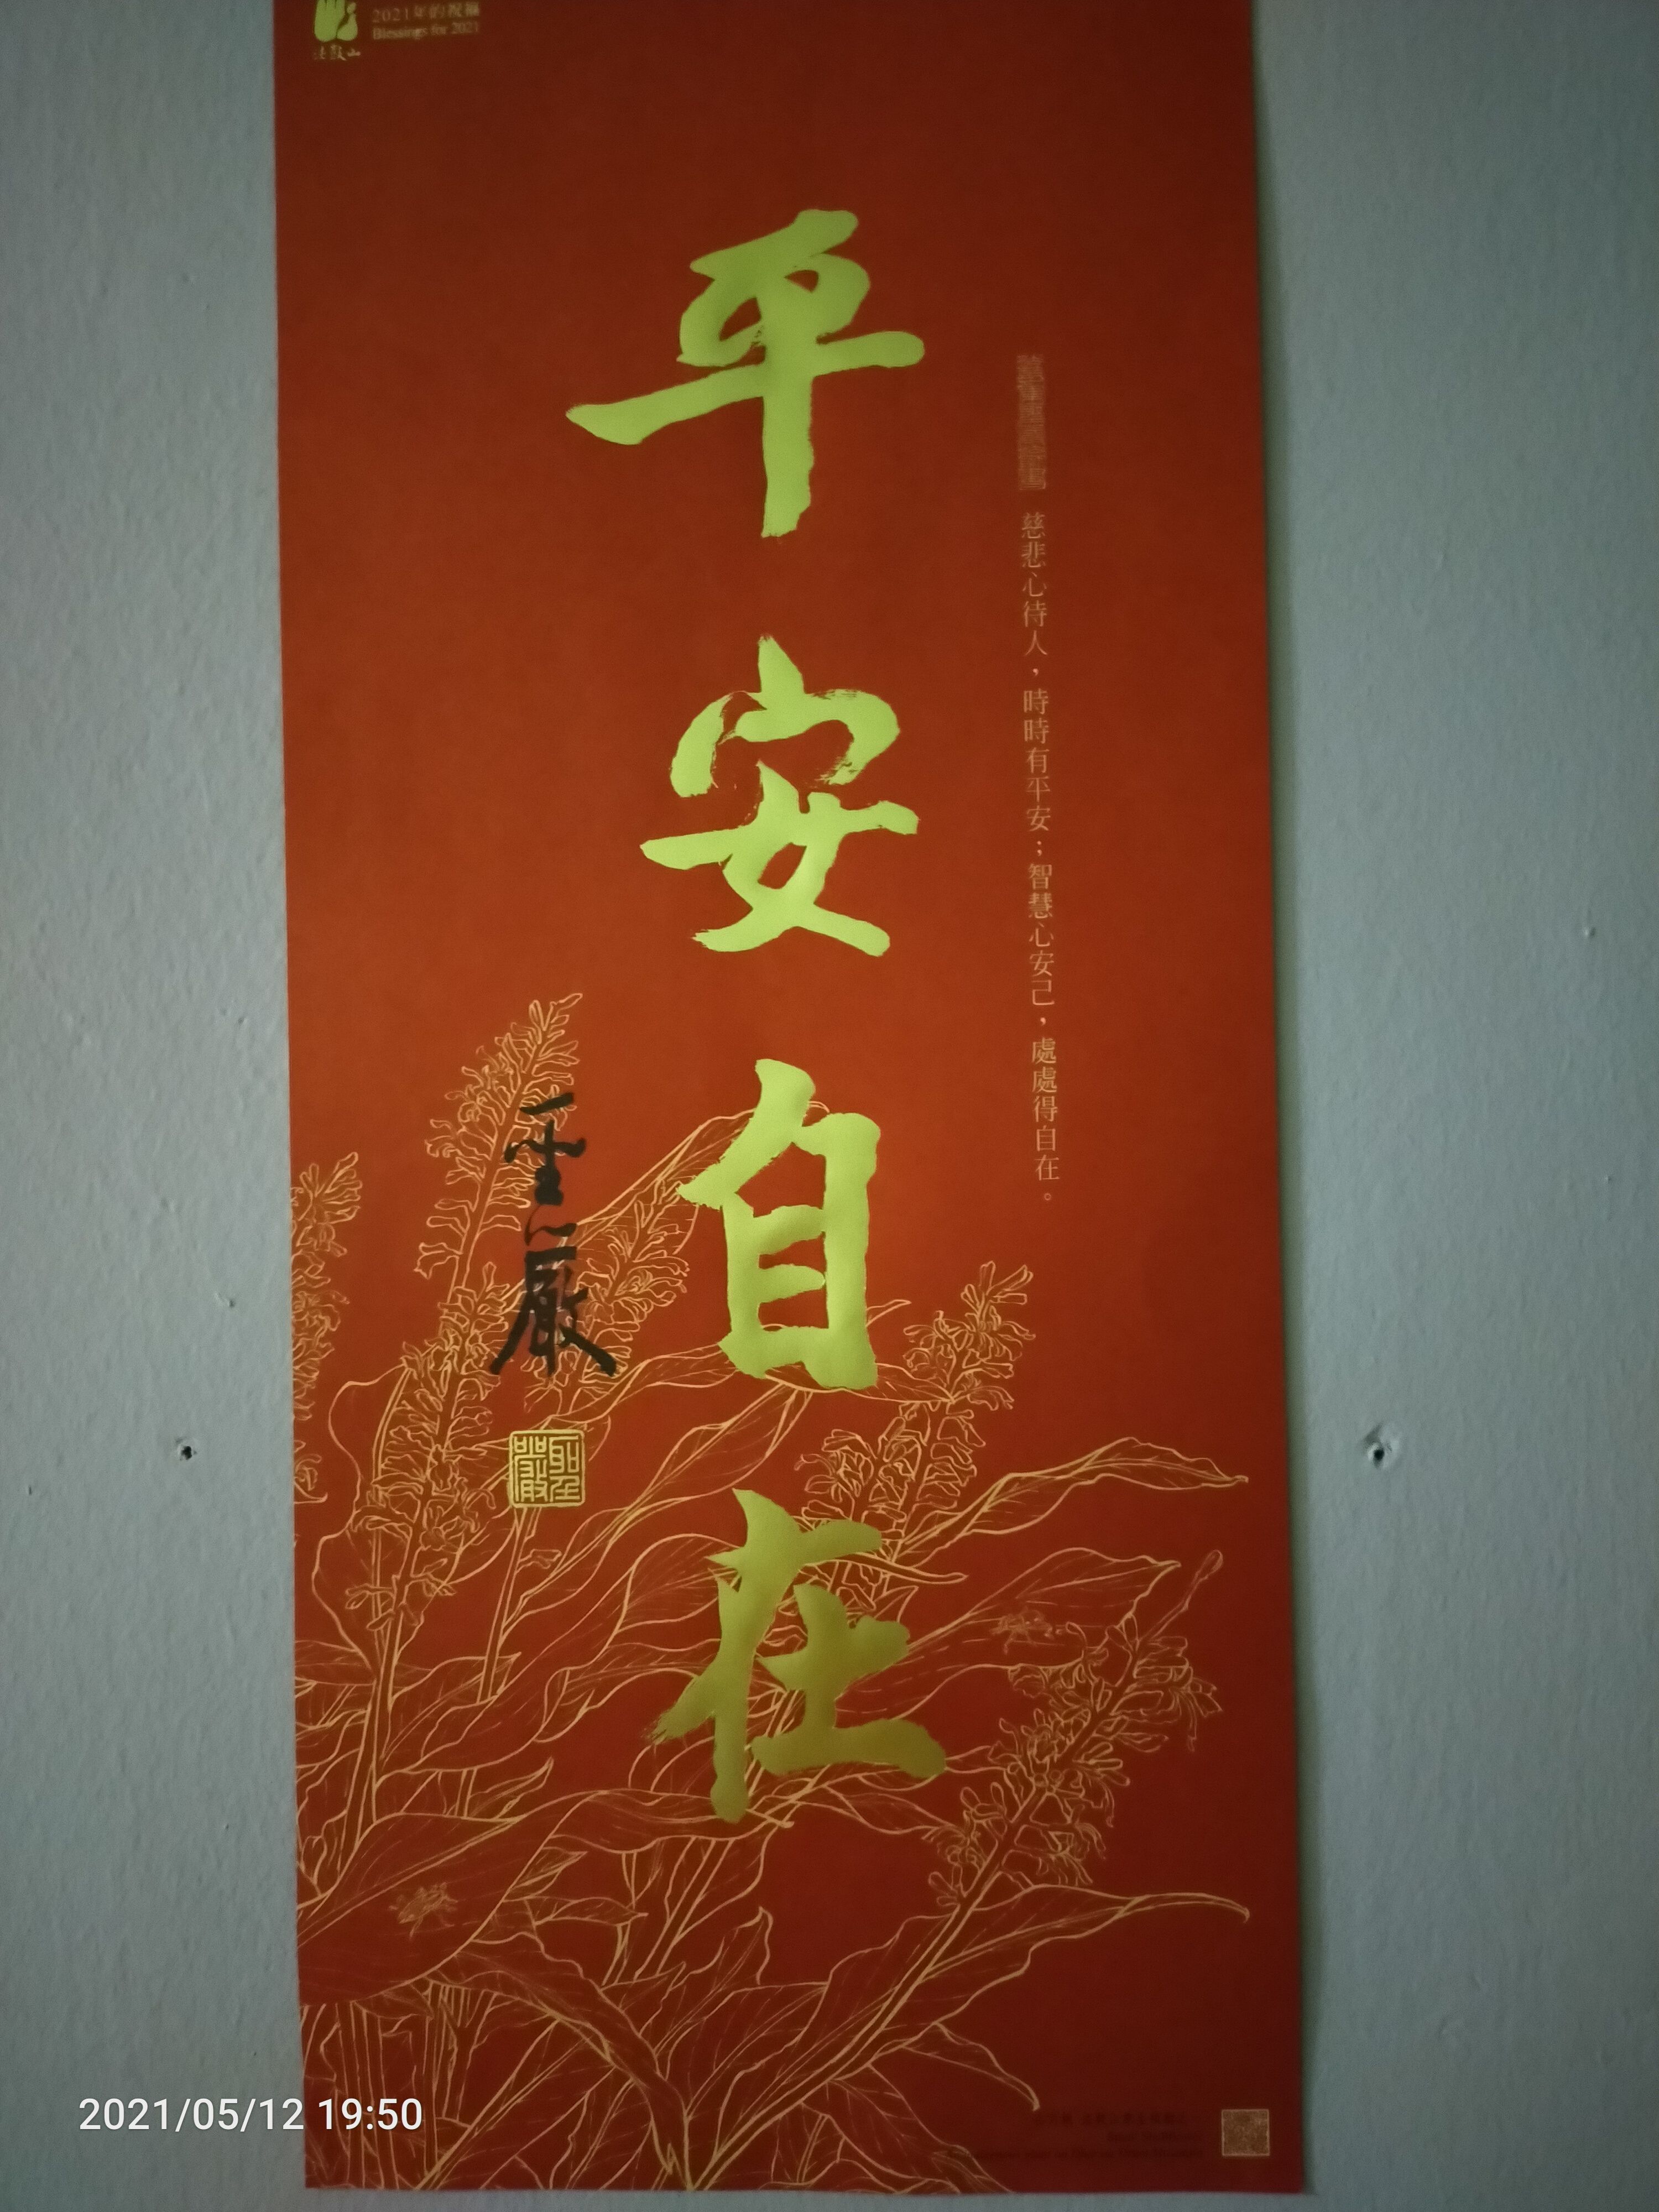 2021年的祝福
Blessings for 2021
法鼓山
慈悲心待人，時時有平安；智慧心安己，處處得自在。
平安自在
聖嚴
聖嚴
2021/05/12 19:50